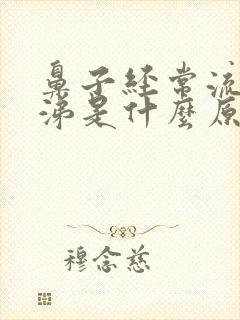 鼻子经常流
涕是什麼原
穆念慈